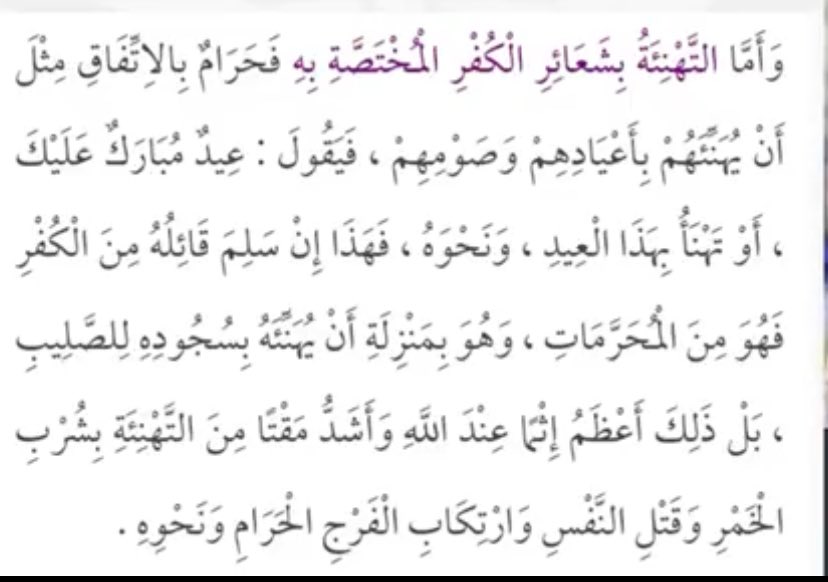 وَأَمَّا التَّهْنِئَةُ بِشَعَائِرِ الْكُفْرِ الْمُخْتَصَّةِ بِهِ فَحَرَامٌ بِالِاتِّفَاقِ مِثْلَ
أَنْ يُهَنِّئَهُمْ بِأَعْيَادِهِمْ وَصَوْمِهِمْ ، فَيَقُولَ : عِيدٌ مُبَارَكٌ عَلَيْكَ
، أَوْ تَهْنَأُ بِهَذَا الْعِيدِ ، وَنَحْوَهُ ، فَهَذَا إِنْ سَلِمَ قَائِلُهُ مِنَ الْكُفْرِ
فَهُوَ مِنَ الْمُحَرَّمَاتِ ، وَهُوَ بِمَنْزِلَةِ أَنْ يُهَنِّئَهُ بِسُجُودِهِ لِلصَّلِيبِ
، بَلْ ذَلِكَ أَعْظَمُ إِثْمًا عِنْدَ اللَّهِ وَأَشَدُّ مَقْتًا مِنَ التَّهْنِئَةِ بِشُرْبِ
الْخَمْرِ وَقَتْلِ النَّفْسِ وَارْتِكَابِ الْفَرْجِ الْحَرَامِ وَنَحْوِهِ .